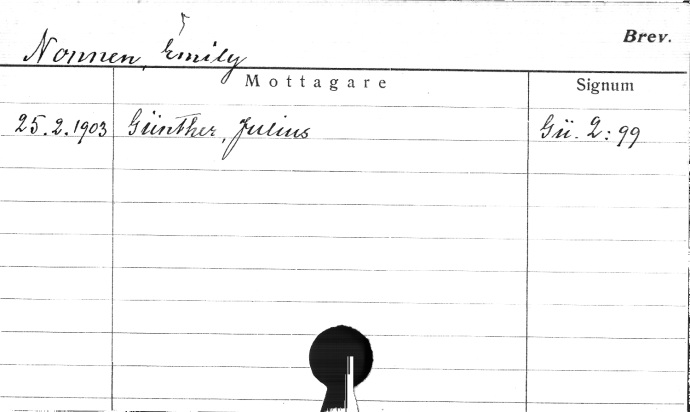 Brev.
Nonnen, Emily
Mottagare Signum
25.2.1903 Günther, Julius Gü. 2:99